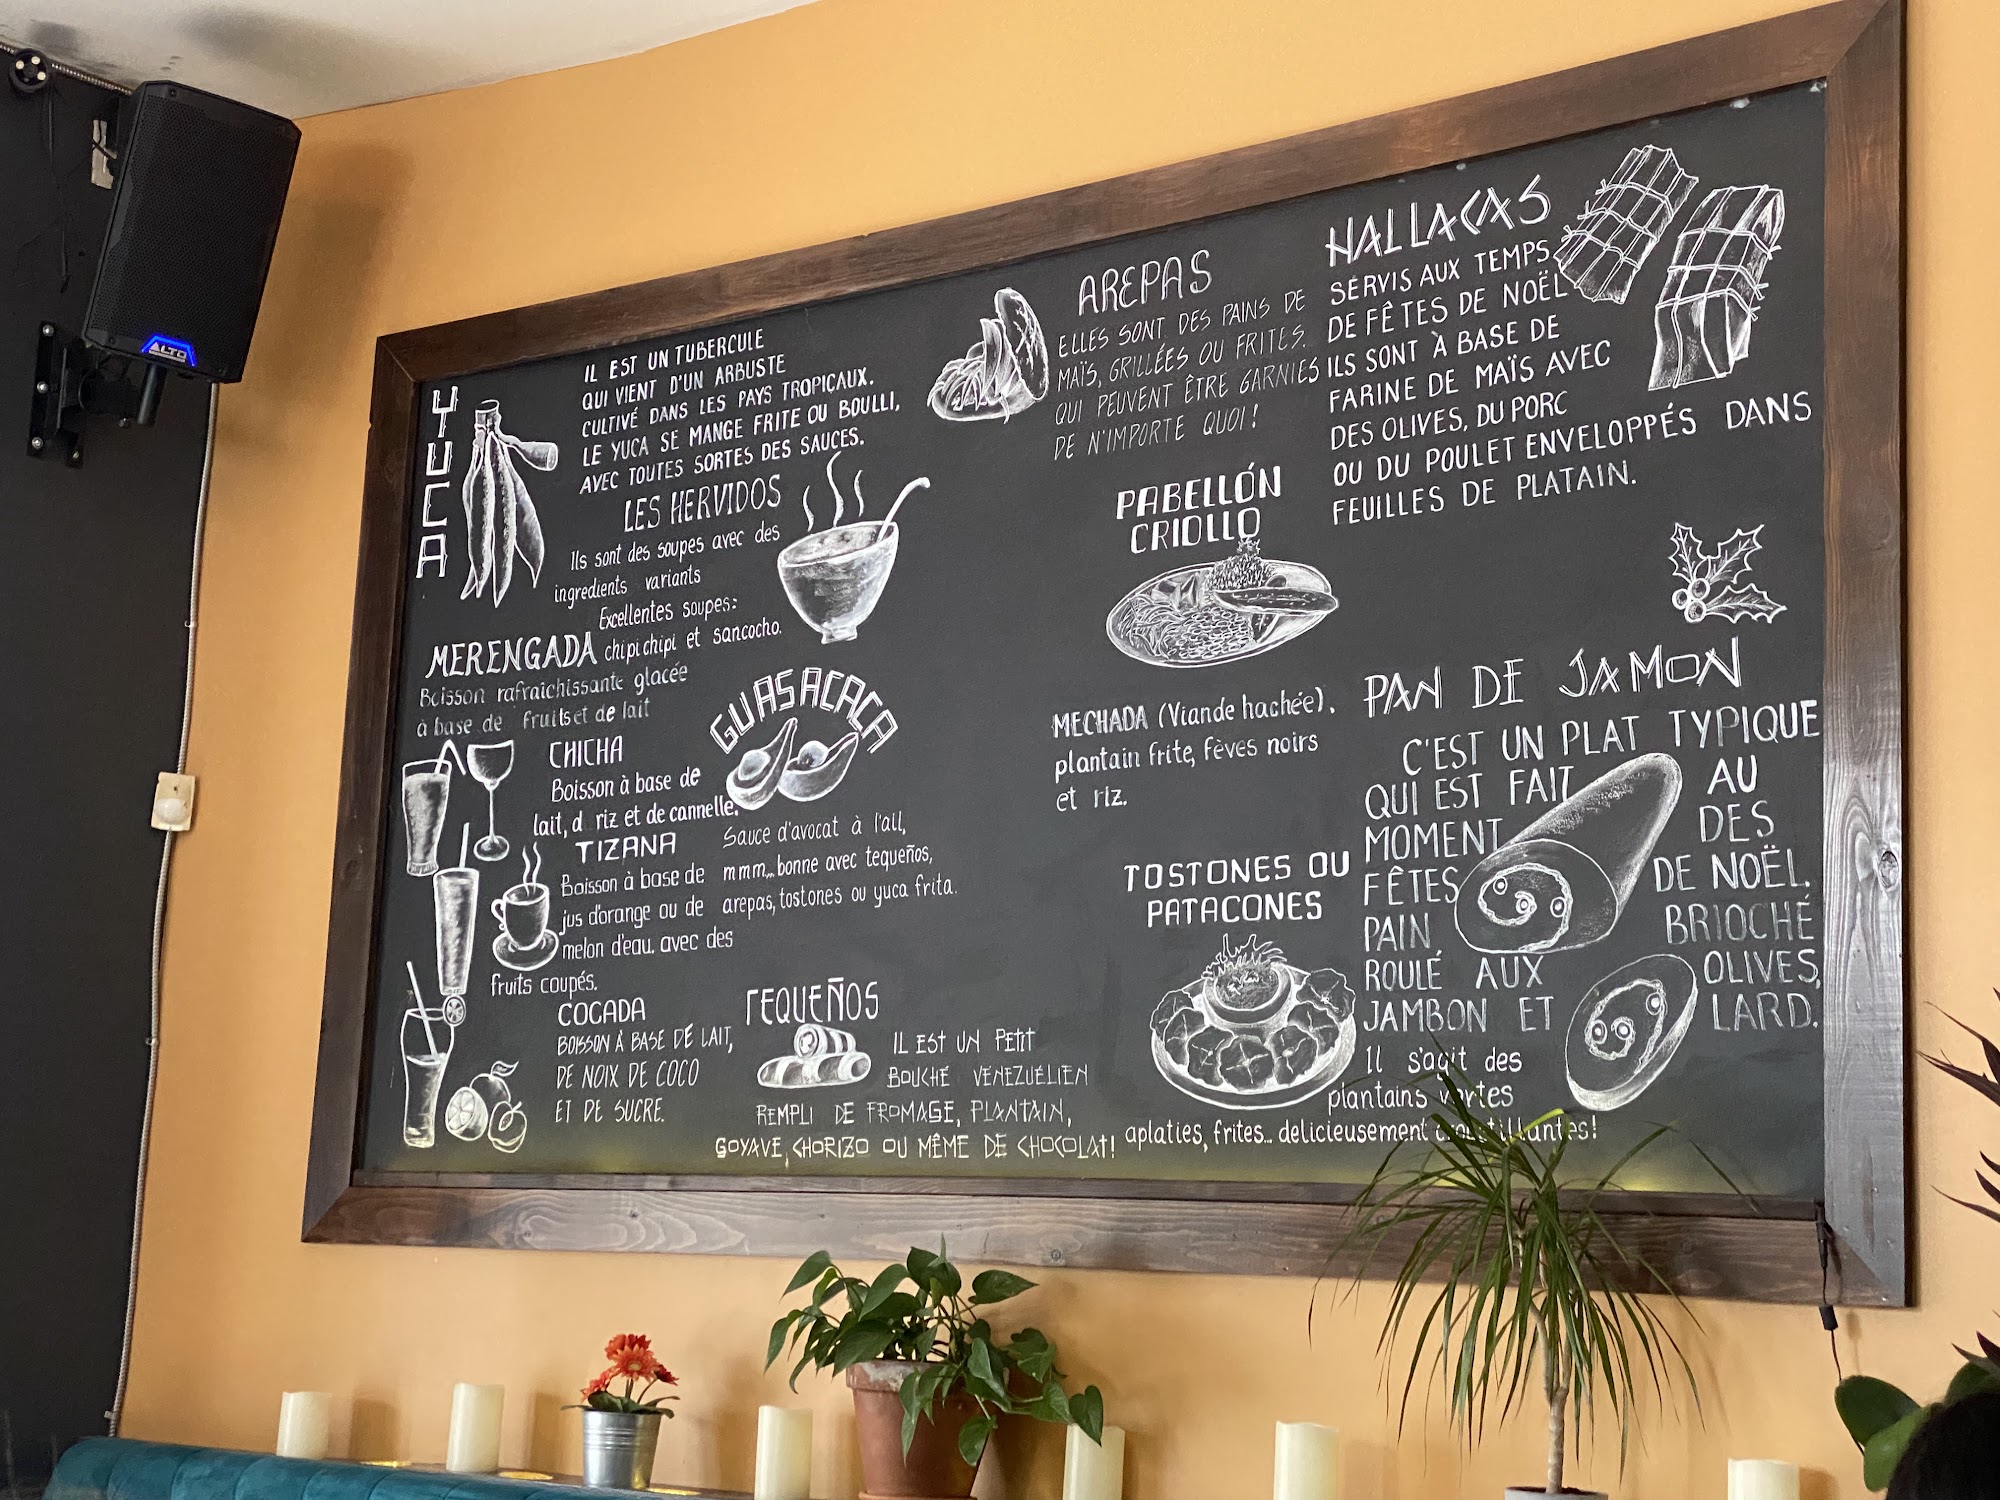 ALTO
YUCA
IL EST UN TUBERCULE
QUI VIENT D'UN ARBUSTE
CULTIVÉ DANS LES PAYS TROPICAUX.
LE YUCA SE MANGE FRITE OU BOULLI,
AVEC TOUTES SORTES DES SAUCES.
LES HERVIDOS
Ils sont des soupes avec des
ingredients variants
Excellentes soupes:
chipichipi et sancocho.
MERENGADA
Boisson rafraîchissante glacée
à base de fruits et de lait
CHICHA
Boisson à base de
lait, d riz et de cannelle.
TIZANA
Boisson à base de
jus d'orange ou de
melon d'eau. avec des
fruits coupés.
COCADA
BOISSON À BASE DE LAIT,
DE NOIX DE COCO
ET DE SUCRE.
GUASACACA
Sauce d'avocat à l'ail,
mmm...bonne avec tequeños,
arepas, tostones ou yuca frita.
TEQUEÑOS
IL EST UN PETIT
BOUCHÉ VENEZUÉLIEN
REMPLI DE FROMAGE, PLANTAIN,
GOYAVE, CHORIZO OU MÊME DE CHOCOLAT!
AREPAS
ELLES SONT DES PAINS DE
MAÏS, GRILLÉES OU FRITES.
QUI PEUVENT ÊTRE GARNIES
DE N'IMPORTE QUOI!
PABELLÓN
CRIOLLO
MECHADA (Viande hachée),
plantain frite, fèves noirs
et riz.
TOSTONES OU
PATACONES
Il s'agit des
plantains vertes
aplaties, frites... delicieusement croustillantes!
HALLACAS
SERVIS AUX TEMPS
DE FÊTES DE NOËL
ILS SONT À BASE DE
FARINE DE MAÏS AVEC
DES OLIVES, DU PORC
OU DU POULET ENVELOPPÉS DANS
FEUILLES DE PLATAIN.
PAN DE JAMON
C'EST UN PLAT TYPIQUE
QUI EST FAIT AU
MOMENT DES
FÊTES DE NOËL.
PAIN BRIOCHÉ
ROULÉ AUX OLIVES,
JAMBON ET LARD.